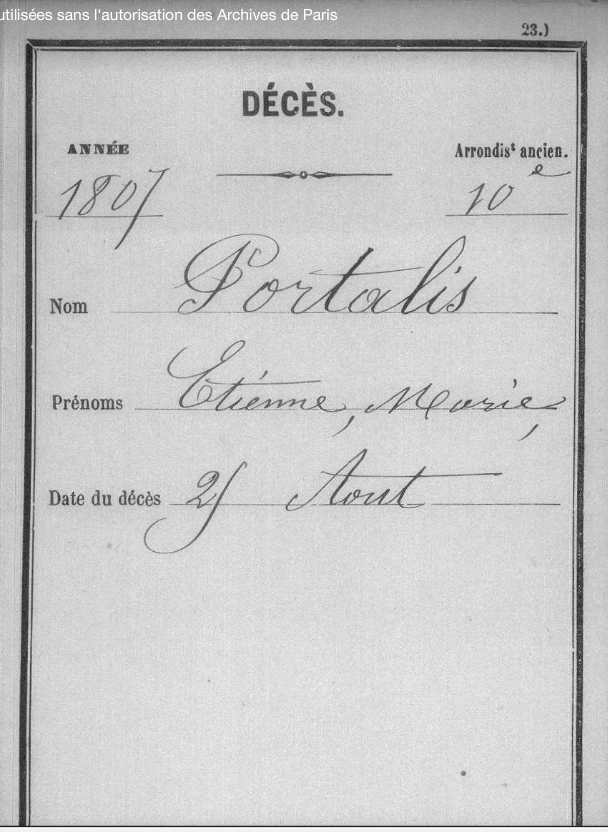 utilisées sans l'autorisation des Archives de Paris
23.)
DÉCÈS.
ANNÉE
Arrondis^t ancien.
1807
10^e
Nom Portalis
Prénoms Etienne, Marie,
Date du décès 25 Aout